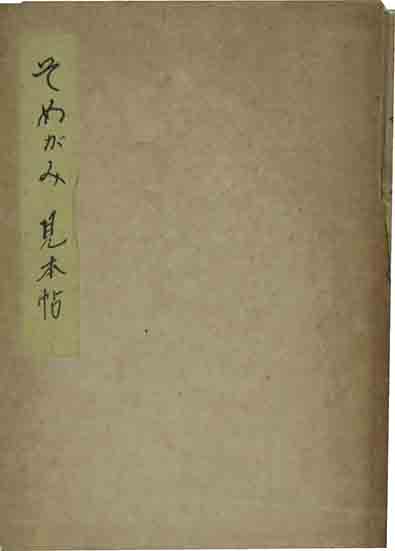 そめがみ 見本帖